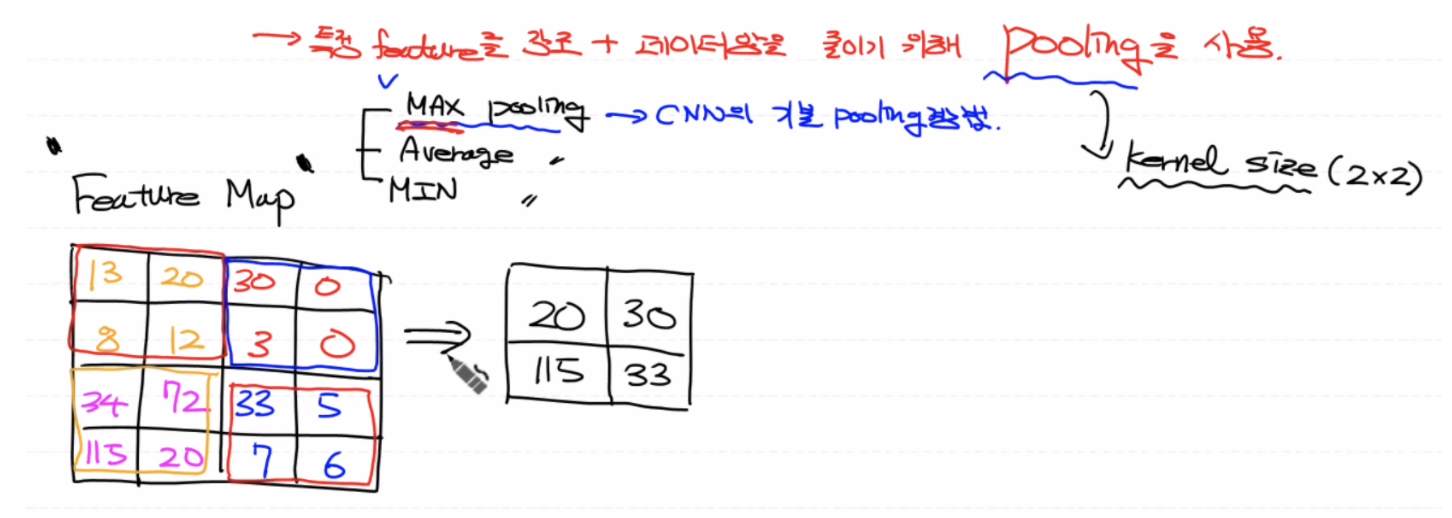 → 특정 feature를 강조 + 데이터양을 줄이기 위해 pooling을 사용.
MAX pooling → CNN의 기본 pooling방법.
Average 〃
MIN 〃
kernel size (2×2)
" Feature Map "
13 20 30 0
8 12 3 0
34 72 33 5
115 20 7 6
⇒
20 30
115 33